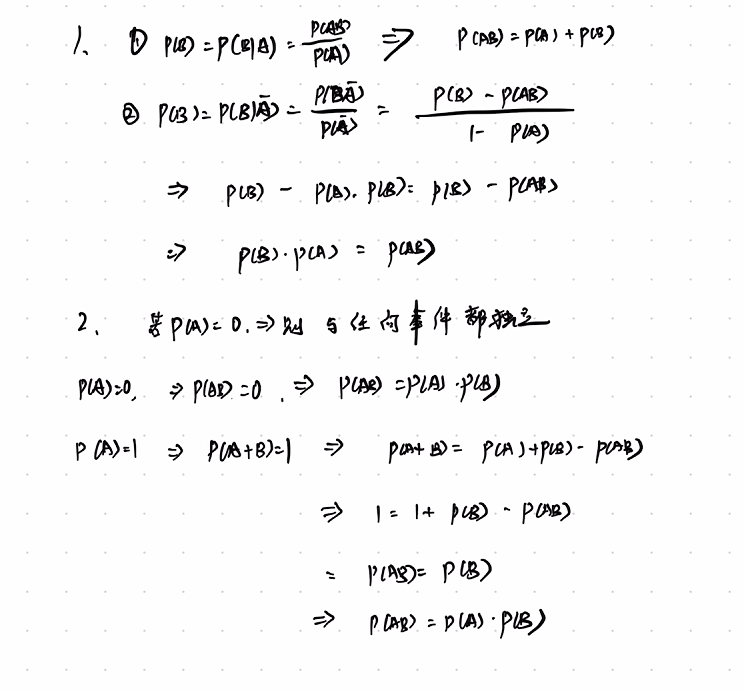 1. ① P(B) = P(B|A) = P(AB)/P(A) ⇒ P(AB) = P(A) + P(B)
② P(B) = P(B|Ā) = P(BĀ)/P(Ā) = (P(B) - P(AB))/(1 - P(A))
⇒ P(B) - P(A). P(B) = P(B) - P(AB)
⇒ P(B) · P(A) = P(AB)
2. 若 P(A) = 0. ⇒ 则 与任何事件都独立
P(A)=0, ⇒ P(AB) = 0. ⇒ P(AB) = P(A) · P(B)
P(A)=1 ⇒ P(A+B)=1 ⇒ P(A+B) = P(A)+P(B) - P(AB)
⇒ 1 = 1 + P(B) - P(AB)
= P(AB) = P(B)
⇒ P(AB) = P(A) · P(B)